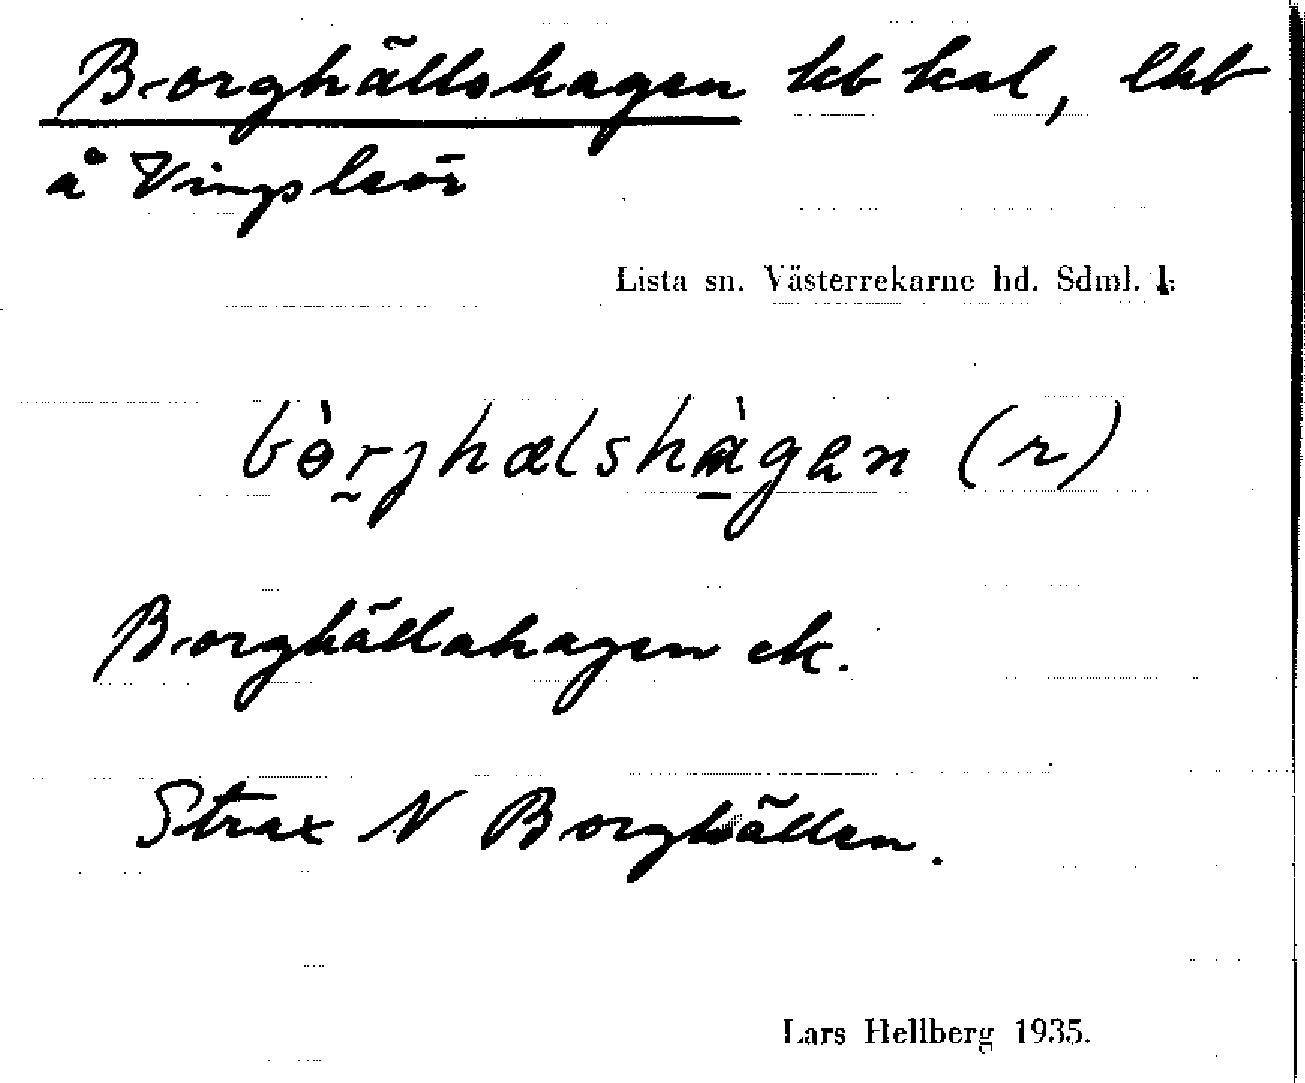 Borghällshagen
å Vingsleör
Lista sn. Västerrekarne hd. Sdml.
Borghällahagen ek.
Strax N Borghällen.
Lars Hellberg 1935.